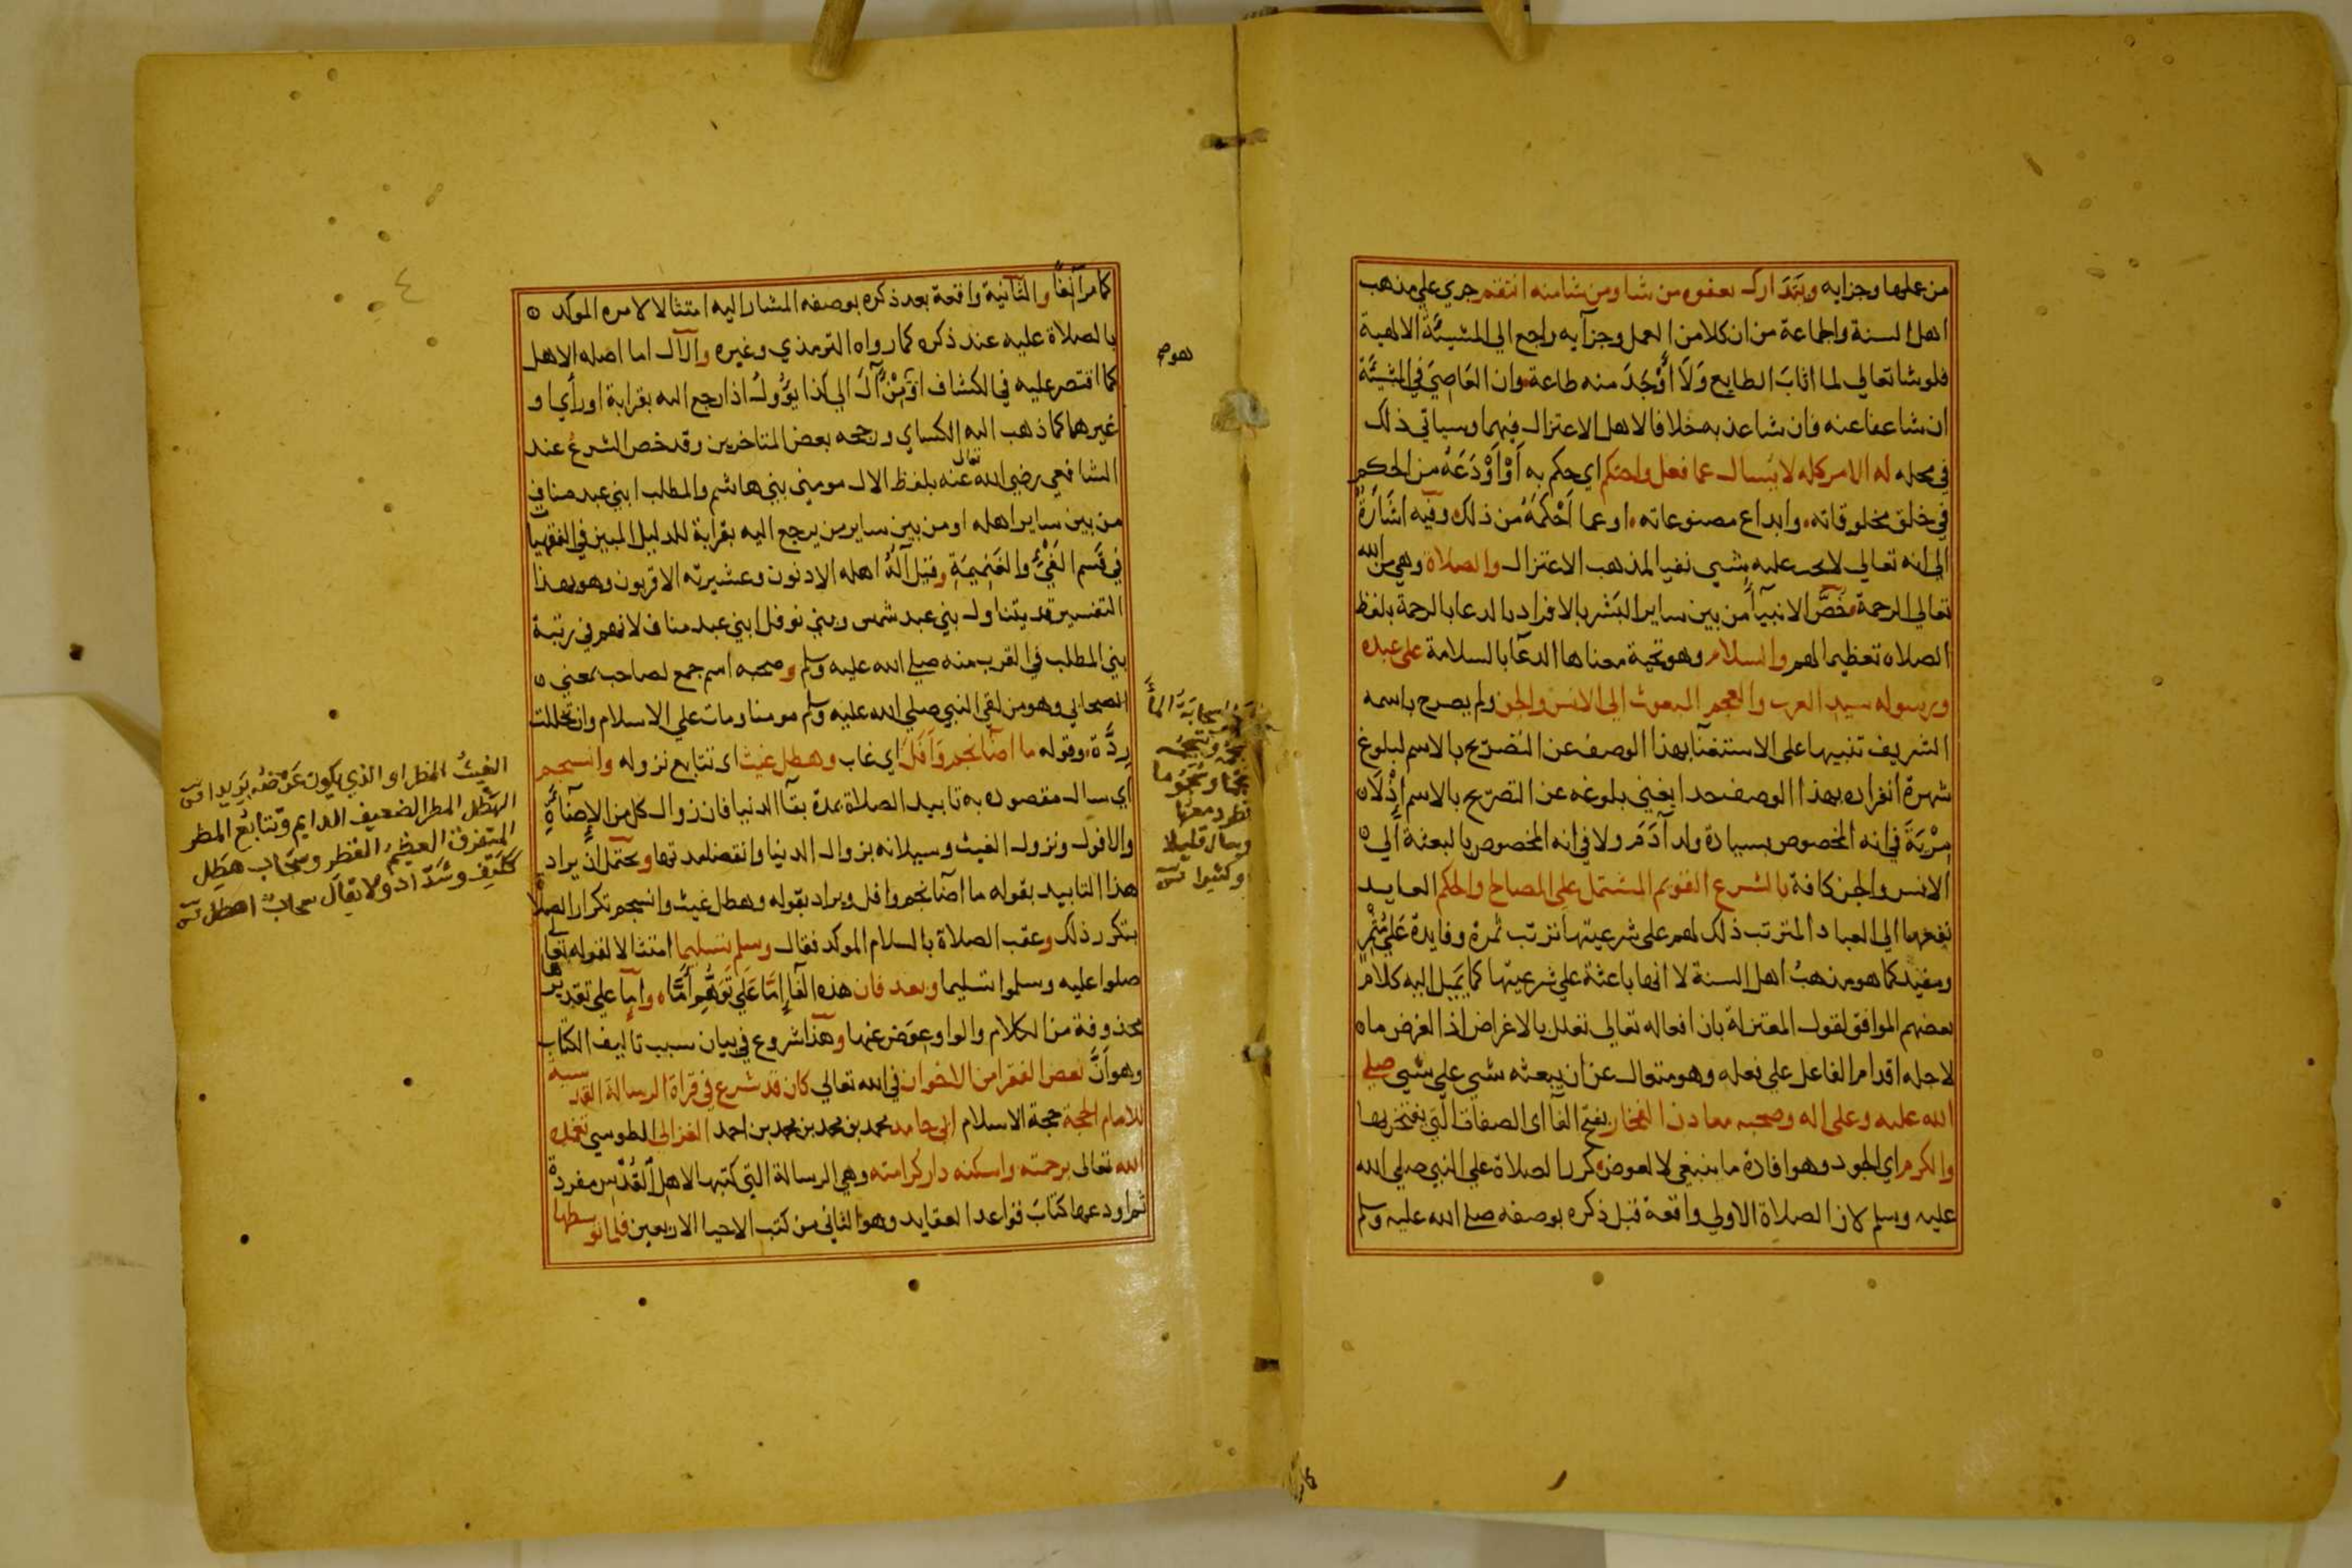 من عملها وجزايه ويتدارك بعفوه من شا ومن شا منه انتقم جري علي مذهب
اهل السنة والجماعة من ان كلا من العمل وجزآيه راجع الي المشيئة الالهية
فلو شا تعالي لما اثاب الطايع وَلَا أَوْجَدَ منه طاعة وان العَاصِيَ في المشيَّة
ان شا عفا عنه فان شا عذبه خلافا لاهل الاعتزال فيهما وسياتي ذلك
في محله له الامر كله لا يُسال عما فعل واحتكم اي حكم به أَوْ أَوْدَعَهُ من الحكم
في خلق مخلوقاته وابداع مصنوعاته اوعما أَحْكَمَهُ من ذلك وفيه اشَارَةٌ
الي انه تعالي لا يجب عليه شي نفيا لمذهب الاعتزال والصلاة وهي من الله
تعالي الرحمة خَصَّ الانبيآ من بين ساير البَشر بالافراد بالدعا بالرحمة بلفظ
الصلاة تعظيما لهم والسلام وهو تحية معناها الدعآ بالسلامة على عبده
ورسوله سيد العرب والعجم المبعوث الي الانس والجن ولم يصرح باسمه
الشريف تنبيها على الاستغنآ بهذا الوصف عن التصريح بالاسم لبلوغ
شهرة انفراده بهذا الوصف حدا يغني بلوغه عن التصريح بالاسم اذْ لَا
مِرْيَةَ في انه المخصوص بسيادة ولد آدَمَ ولا في انه المخصوص بالبعثة الي
الانس والجن كافة بالشرع القويم المشتمل علي المصالح والحكم العايد
نفعها الي العباد المترتب ذلك لهم على شرعيتها ترتب ثمرة وفايدة عَلَي مُثْمِرٍ
ومفيد كما هو مذهبُ اهل السنة لا انها باعثة علي شرعيتها كما يَميل اليه كلام
بعضهم الموافق لقول المعتزلة بان افعاله تعالي تعلل بالاغراض اذ الغرض ما
لاجله اقدام الفاعل علي فعله وهو متعال عن ان يبعثه شي علي شي صلي
الله عليه وعلى اله وصحبه معادن الفخار بفتح الفآ اى الصفات التي يفتخر بها
والكرم اي الجود وهو افادة ما ينبغي لا لعوض كرر الصلاة علي النبي صلي الله
عليه وسلم لان الصلاة الاولي واقعة قبل ذكره بوصفه صلي الله عليه وسلم
كما مر آنفًا والثانية واقعة بعد ذكره بوصفه المشار اليه امتثالا لامره الموكد
بالصلاة عليه عند ذكره كما رواه الترمذي وغيره والآل اما اصله الاهل
كما اقتصر عليه في الكشاف اوْ مِنْ آلَ الي كذا يؤُول اذا رجع اليه بقرابة او رأي او
غيرهما كما ذهب اليه الكساي ورجحه بعض المتاخرين وقد خص الشرع عند
الشافعي رضي الله تعالى عنه بلفظ الال مومني بني هاشم والمطلب ابني عبد مناف
من بين ساير اهله او من بين ساير من يرجع اليه بقرابة للدليل المبين في الفقهيات
في قَسْم الفَيْءِ والغنيمَةِ وقيل آلُهُ اهله الادنون وعشيرته الاقربون وهو بهذا
التفسير قد يتناول بني عبد شمس وبني نوفل ابني عبد مناف لانهم في رتبة
بني المطلب في القرب منه صلي الله عليه وسلم وصحبه اسم جمع لصاحب بمعني
الصحابي وهو من لقي النبي صلي الله عليه وسلم مومنا ومات علي الاسلام وان تخللت
رِدَّة وقوله ما اضآ نجم وَأَفَلَ اي غاب وهطل غيث اى تتابع نزوله وانسجم
اي سال مقصوده به تابيد الصلاة مدة بقآ الدنيا فان زوال كل من الإضآءَةِ
والافول ونزول الغيث وسيلانه بزوال الدنيا وانقضا مدتها ويحتمل ان يراد
هذا التابيد بقوله ما اضآ نجم وافل ويراد بقوله وهطل غيث وانسجم تكرار الصلاة
بتكرر ذلك وعقب الصلاة بالسلام الموكد فقال وسلم تسليما امتثالا لقوله تعالي
صلوا عليه وسلموا تسليما وبعد فان هذه الفآ إمَّا عَلَي تَوَهُّمِ أَمَّا وامآ علي تقديرها
محذوفة من الكلام والواو عوض عنها وهذا شروع في بيان سبب تاليف الكتاب
وهو أَنَّ بعض الفقرا من الاخوان في الله تعالي كان قد شرع في قراة الرسالة القدسية
للامام الحجة حجة الاسلام ابي حامد محمد بن محمد بن محمد بن احمد الغزالي الطوسي تغمده
الله تعالى برحمته واسكنه دار كرامته وهي الرسالة التي كتبها لاهل القدس مفردة
ثم اودعها كتاب قواعد العقايد وهو الثاني من كتب الاحيا الاربعين فلما توسطها
سحابَةُ المآ
وسال قليلا
وكثيرا
الغيثُ المطر او الذي يكون عَرْضُه بَرِيدا
الهَطْل المطر الضعيف الدايم وتتابُع المطر
المتفرق العظيمُ القطر وسحَاب هَطِل
ككتِف وشَدّاد ولا يقال سحابٌ اهطل
٤